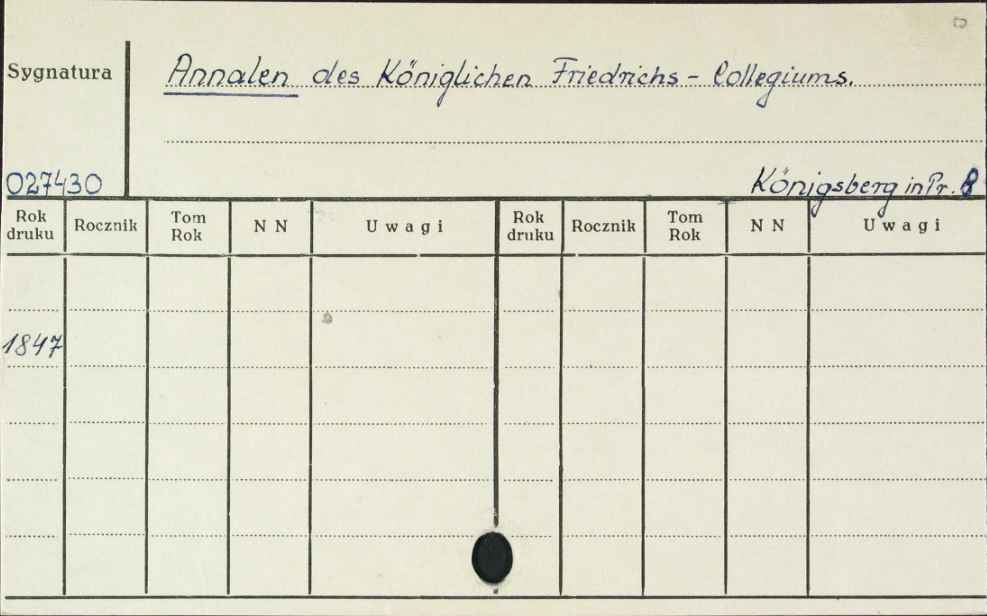 Sygnatura
Annalen des Königlichen Friedrichs - Collegiums.
027430
Königsberg in Pr.
Rok druku Rocznik Tom Rok N N Uwagi Rok druku Rocznik Tom Rok N N Uwagi
1847